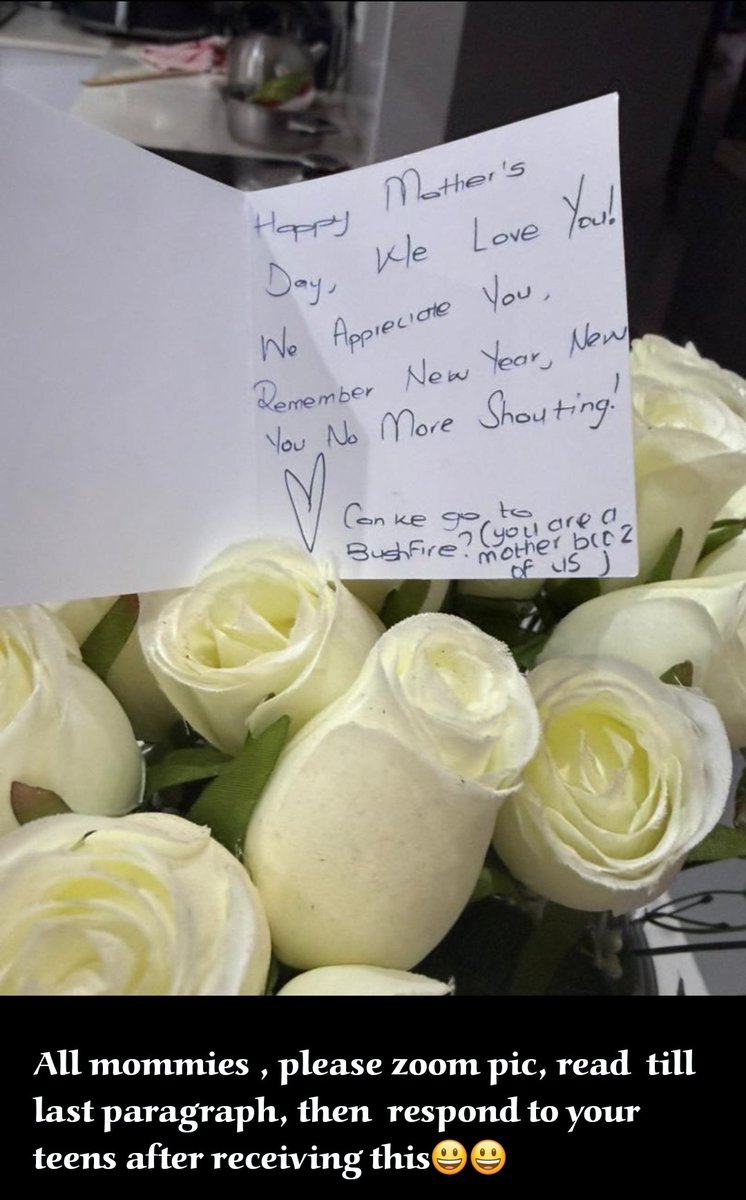 Happy Mother's
Day, We Love You!
We Appreciate You.
Remember New Year, New
You No More Shouting!
Can ke go to
BushFire? (you are a
mother bcc 2
of us)
All mommies , please zoom pic, read till
last paragraph, then respond to your
teens after receiving this😃😃